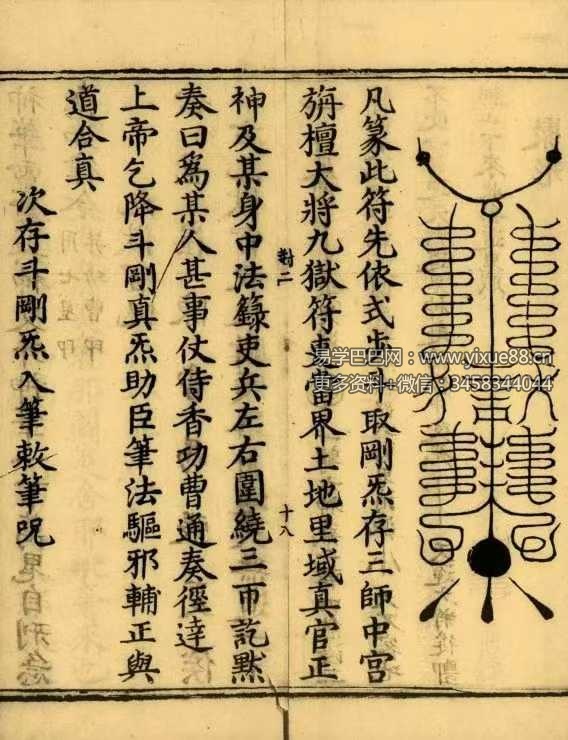 凡篆此符先依式步斗取剛炁存三師中宮
旃檀大將九獄符吏當界土地里域真官正
神及某身中法籙吏兵左右圍繞三帀訖默
對二
十八
奏曰爲某人甚事仗侍香功曹通奏徑達
上帝乞降斗剛真炁助臣筆法驅邪輔正與
道合真
次存斗剛炁入筆敕筆呪
易学巴巴网：www.yixue88.cn
更多资料+微信：3458344044